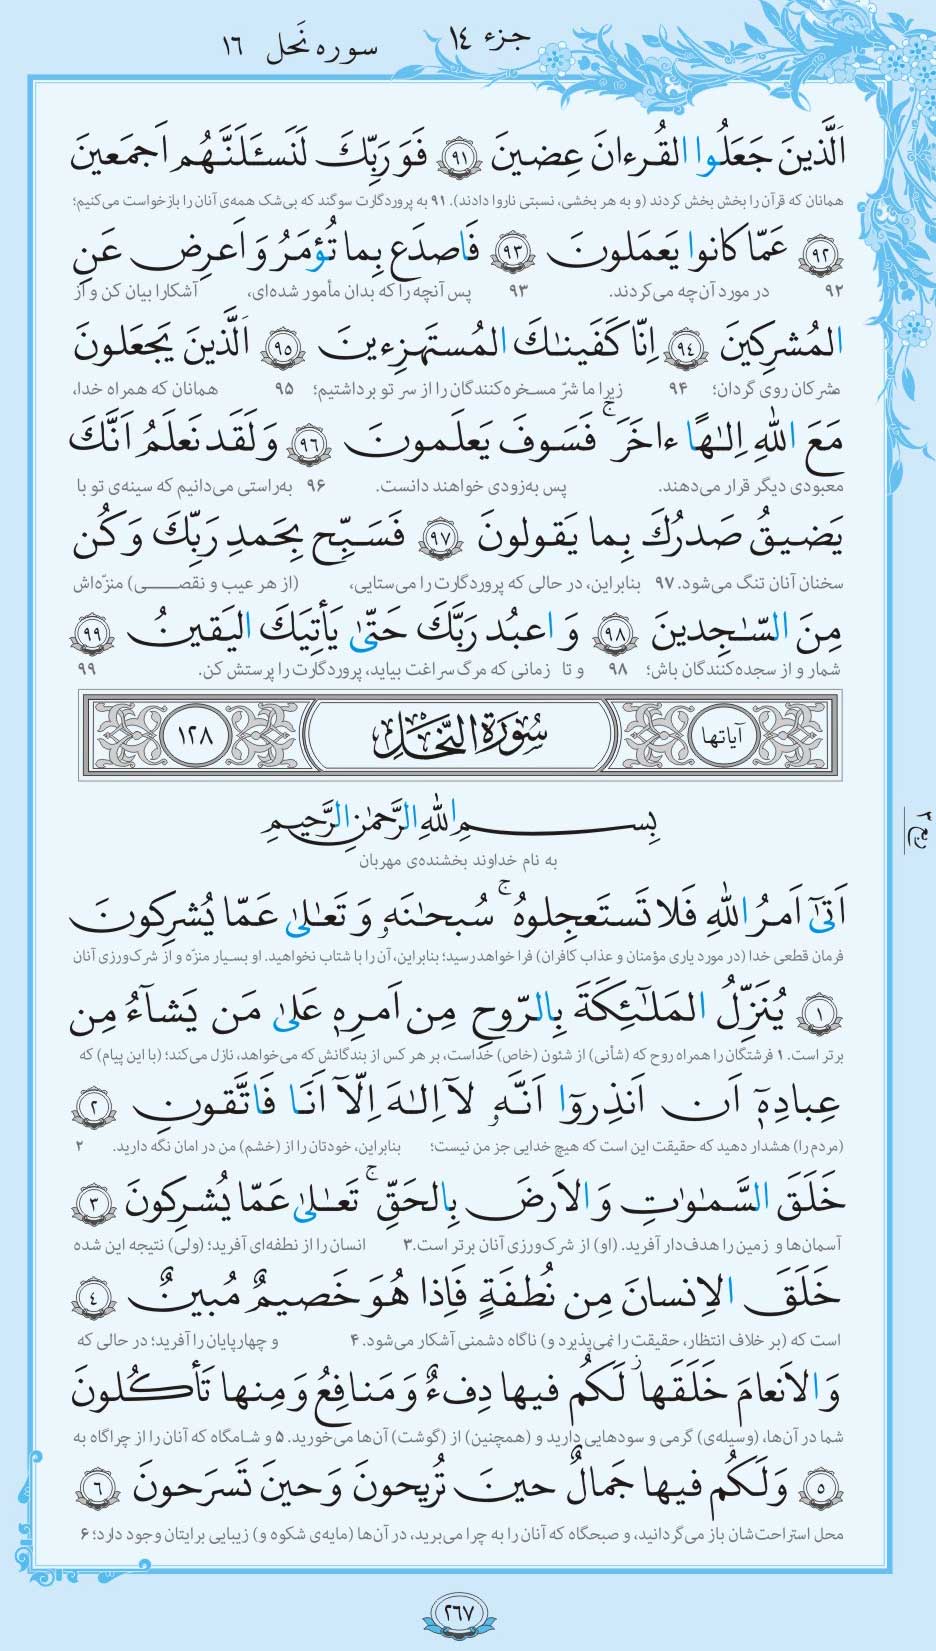 جزء ١٤
سوره نَحل ١٦
اَلَّذینَ جَعَلُوا القُرءانَ عِضینَ ﴿٩١﴾ فَوَرَبِّكَ لَنَسئَلَنَّهُم اَجمَعینَ
همانان که قرآن را بخش بخش کردند (و به هر بخشی، نسبتی ناروا دادند). ۹۱ به پروردگارت سوگند که بی‌شک همه‌ی آنان را بازخواست می‌کنیم؛
﴿٩٢﴾ عَمّا كانوا یَعمَلونَ ﴿٩٣﴾ فَاصدَع بِما تُؤمَرُ وَ اَعرِض عَنِ
۹۲ در مورد آن‌چه می‌کردند. ۹۳ پس آنچه را که بدان مأمور شده‌ای، آشکارا بیان کن و از
المُشرِكینَ ﴿٩٤﴾ اِنّا كَفَینٰكَ المُستَهزِءینَ ﴿٩٥﴾ اَلَّذینَ یَجعَلونَ
مشرکان روی گردان؛ ۹۴ زیرا ما شرّ مسخره‌کنندگان را از سر تو برداشتیم؛ ۹۵ همانان که همراه خدا،
مَعَ اللهِ اِلٰهًا ءاخَرَ ۚ فَسَوفَ یَعلَمونَ ﴿٩٦﴾ وَ لَقَد نَعلَمُ اَنَّكَ
معبودی دیگر قرار می‌دهند. پس به‌زودی خواهند دانست. ۹۶ به‌راستی می‌دانیم که سینه‌ی تو با
یَضیقُ صَدرُكَ بِما یَقولونَ ﴿٩٧﴾ فَسَبِّح بِحَمدِ رَبِّكَ وَ كُن
سخنان آنان تنگ می‌شود. ۹۷ بنابراین، در حالی که پروردگارت را می‌ستایی، (از هر عیب و نقصـی) منزّه‌اش
مِنَ السّٰجِدینَ ﴿٩٨﴾ وَ اعبُد رَبَّكَ حَتّیٰ یَأتِیَكَ الیَقینُ ﴿٩٩﴾
شمار و از سجده‌کنندگان باش؛ ۹۸ و تا زمانی که مرگ سراغت بیاید، پروردگارت را پرستش کن. ۹۹
آیاتها سُورَةُ النَّحلِ ١٢٨
ربع ٢
بِسمِ اللهِ الرَّحمٰنِ الرَّحیمِ
به نام خداوند بخشنده‌ی مهربان
اَتیٰٓ اَمرُ اللهِ فَلا تَستَعجِلوهُ ۚ سُبحٰنَهو وَ تَعٰلیٰ عَمّا یُشرِكونَ
فرمان قطعی خدا (در مورد یاری مؤمنان و عذاب کافران) فرا خواهد رسید؛ بنابراین، آن را با شتاب نخواهید. او بسیار منزّه و از شرک‌ورزی آنان
﴿١﴾ یُنَزِّلُ المَلٰٓئِكَةَ بِالرّوحِ مِن اَمرِهٖ عَلیٰ مَن یَشآءُ مِن
برتر است. ۱ فرشتگان را همراه روح که (شأنی) از شئون (خاص) خداست، بر هر کس از بندگانش که می‌خواهد، نازل می‌کند؛ (با این پیام) که
عِبادِهٖٓ اَن اَنذِروٓا اَنَّهو لآ اِلٰهَ اِلّآ اَنَا فَاتَّقونِ ﴿٢﴾
(مردم را) هشدار دهید که حقیقت این است که هیچ خدایی جز من نیست؛ بنابراین، خودتان را از (خشم) من در امان نگه دارید. ۲
خَلَقَ السَّمٰوٰتِ وَ الاَرضَ بِالحَقِّ ۚ تَعٰلیٰ عَمّا یُشرِكونَ ﴿٣﴾
آسمان‌ها و زمین را هدف‌دار آفرید. (او) از شرک‌ورزی آنان برتر است. ۳ انسان را از نطفه‌ای آفرید؛ (ولی) نتیجه این شده
خَلَقَ الاِنسانَ مِن نُطفَةٍ فَاِذا هُوَ خَصیمٌ مُبینٌ ﴿٤﴾
است که (بر خلاف انتظار، حقیقت را نمی‌پذیرد و) ناگاه دشمنی آشکار می‌شود. ۴ و چهارپایان را آفرید؛ در حالی که
وَ الاَنعامَ خَلَقَها ۗ لَكُم فیها دِفءٌ وَ مَنافِعُ وَ مِنها تَأكُلونَ
شما در آن‌ها، (وسیله‌ی) گرمی و سودهایی دارید و (همچنین) از (گوشت) آن‌ها می‌خورید. ۵ و شامگاه که آنان را از چراگاه به
﴿٥﴾ وَ لَكُم فیها جَمالٌ حینَ تُریحونَ وَ حینَ تَسرَحونَ ﴿٦﴾
محل استراحت‌شان باز می‌گردانید، و صبحگاه که آنان را به چرا می‌برید، در آن‌ها (مایه‌ی شکوه و) زیبایی برایتان وجود دارد؛ ۶
٢٦٧